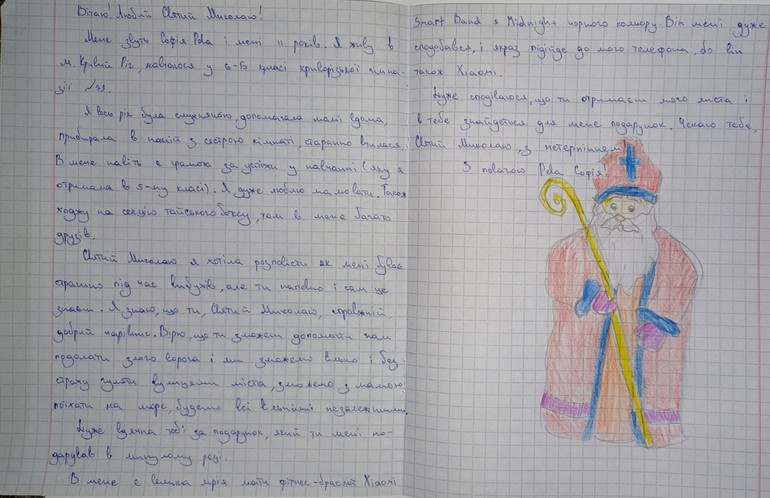 Вітаю! Любий Святий Миколаю!
Мене звуть Софія Рева і мені 11 років. Я живу в
м. Кривий Ріг, навчаюся у 6-Б класі криворізької гімна-
зії №
Я весь рік була слухняною, допомагала мамі вдома,
прибирала в нашій з сестрою кімнаті, старанно вчилася.
В мене навіть є грамота за успіхи у навчанні (яку я
отримала в 5-му класі). Я дуже люблю малювати. Також
ходжу на секцію тайського боксу, там в мене багато
друзів.
Святий Миколаю я хотіла розповісти як мені буває
страшно під час вибухів, але ти напевно і сам це
знаєш. Я знаю, що ти, Святий Миколаю, справжній,
добрий чарівник. Вірю, що ти зможеш допомогти нам
подолати злого ворога і ми зможемо вільно і без
страху гуляти вулицями міста, зможемо з мамою
поїхати на море, будемо всі вільними незалежними.
Дуже вдячна тобі за подарунок, який ти мені по-
дарував в минулому році.
В мене є велика мрія мати фітнес-браслет Xiaomi
Smart Band 8 Midnight чорного кольору. Він мені дуже
сподобався, і якраз підійде до мого телефона, бо він
також Xiaomi.
Дуже сподіваюся, що ти отримаєш мого листа і
в тебе знайдеться для мене подарунок. Чекаю тебе,
Святий Миколаю, з нетерпінням!
З повагою Рева Софія!